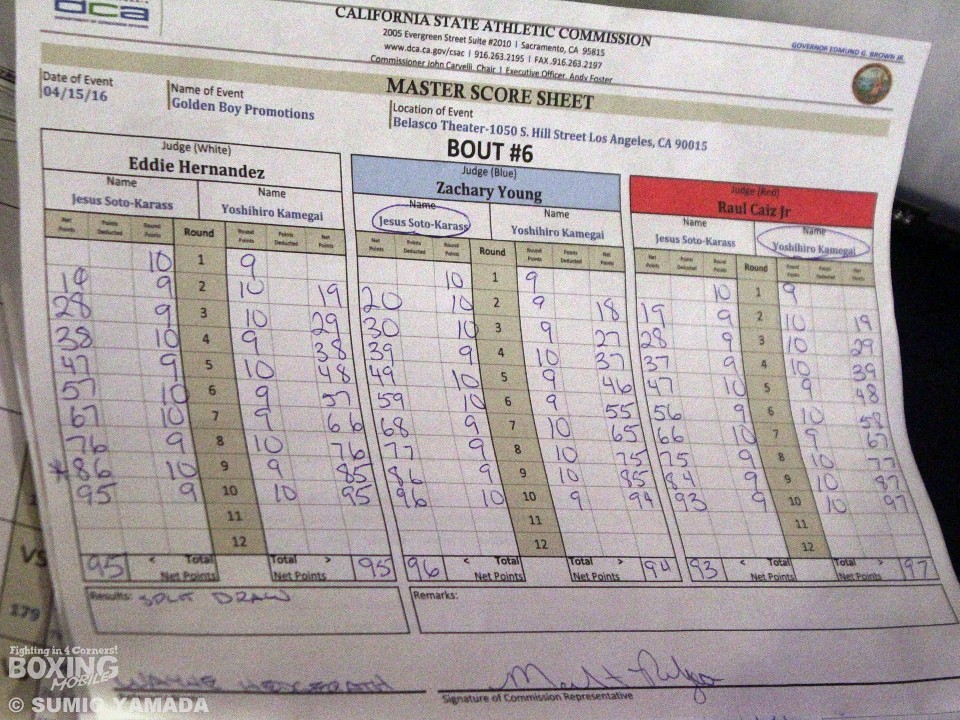 dca
CALIFORNIA STATE ATHLETIC COMMISSION
2005 Evergreen Street Suite #2010 | Sacramento, CA 95815
www.dca.ca.gov/csac | 916.263.2195 | FAX .916.263.2197
Commissioner John Carvelli, Chair | Executive Officer, Andy Foster
GOVERNOR EDMUND G. BROWN JR.
MASTER SCORE SHEET
Date of Event
04/15/16
Name of Event
Golden Boy Promotions
Location of Event
Belasco Theater-1050 S. Hill Street Los Angeles, CA 90015
BOUT #6
Judge (White)
Eddie Hernandez
Name Name
Jesus Soto-Karass Yoshihiro Kamegai
Net Points Points Deducted Round Points Round Round Points Points Deducted Net Points
10 1 9
19 9 2 10 19
28 9 3 10 29
38 10 4 9 38
47 9 5 10 48
57 10 6 9 57
67 10 7 9 66
76 9 8 10 76
*86 10 9 9 85
95 9 10 10 95
11
12
95 < Total Net Points Total > Net Points 95
Judge (Blue)
Zachary Young
Name Name
Jesus Soto-Karass Yoshihiro Kamegai
Net Points Points Deducted Round Points Round Round Points Points Deducted Net Points
10 1 9
20 10 2 9 18
30 10 3 9 27
39 9 4 10 37
49 10 5 9 46
59 10 6 9 55
68 9 7 10 65
77 9 8 10 75
86 9 9 10 85
96 10 10 9 94
11
12
96 < Total Net Points Total > Net Points 94
Judge (Red)
Raul Caiz Jr
Name Name
Jesus Soto-Karass Yoshihiro Kamegai
Net Points Points Deducted Round Points Round Round Points Points Deducted Net Points
10 1 9
19 9 2 10 19
28 9 3 10 29
37 9 4 10 39
47 10 5 9 48
56 9 6 10 58
66 10 7 9 67
75 9 8 10 77
84 9 9 10 87
93 9 10 10 97
11
12
93 < Total Net Points Total > Net Points 97
Results: SPLIT DRAW
Remarks:
WAYNE
Signature of Commission Representative
VS
179
Fighting in 4 Corners!
BOXING
MOBILE
© SUMIO YAMADA